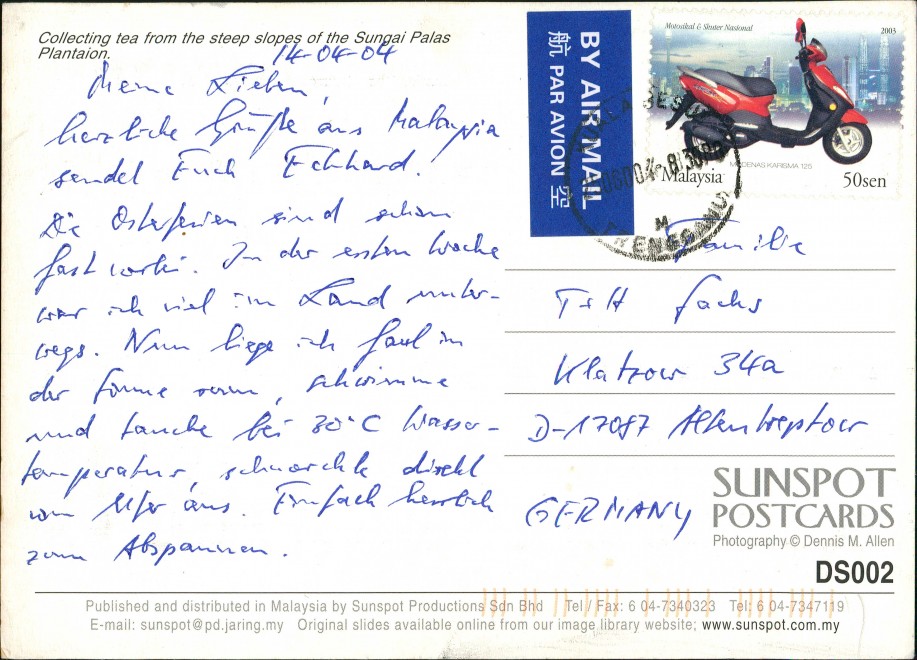 Collecting tea from the steep slopes of the Sungai Palas
Plantaion.
14-04-04
Meine Lieben,
herzliche Grüße aus Malaysia
sendet Euch Eckhard.
Die Osterferien sind schon
fast vorbei. In der ersten Woche
war ich viel im Land unter-
wegs. Nun liege ich faul in
der Sonne rum, schwimme
und tauche bei 30°C Wasser-
temperatur, schnorchle direkt
vom Ufer aus. Einfach herrlich
zum Abspannen.
BY AIR MAIL
航 PAR AVION 空
Motosikal & Skuter Nasional
2003
MODENAS KARISMA 125
Malaysia
50sen
M
TRENGGANU
Familie
T+H Sachs
Klatzow 34a
D-17087 Altentreptow
GERMANY
SUNSPOT
POSTCARDS
Photography © Dennis M. Allen
DS002
Published and distributed in Malaysia by Sunspot Productions Sdn Bhd Tel / Fax: 6 04-7340323 Tel: 6 04-7347119
E-mail: sunspot@pd.jaring.my Original slides available online from our image library website; www.sunspot.com.my